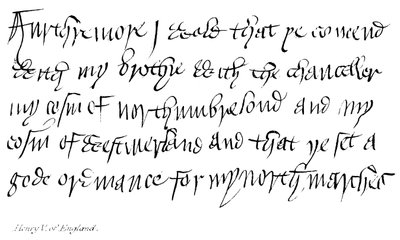 Furthremore I wold that ye comend
with my brothre with the chanceller
my cosin of northumbrelond and my
cosin of westmerland and that ye set a
gode ordinance for my north marches
Henry V. of England.